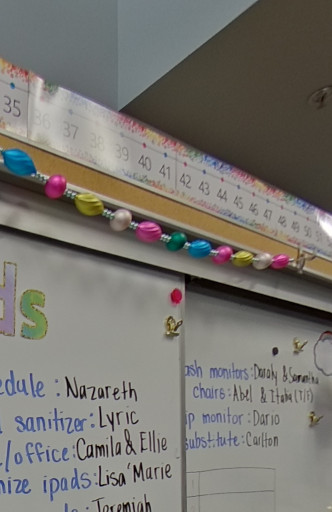 35 36 37 38 39 40 41 42 43 44 45 46 47 48 49 50
ds
edule: Nazareth
sanitizer: Lyric
/office: Camila & Ellie
nize ipads: Lisa'Marie
Jeremiah
ash monitors: Daraly & Samantha
chairs: Abel & Itahu (T/F)
up monitor: Dario
substitute: Carlton